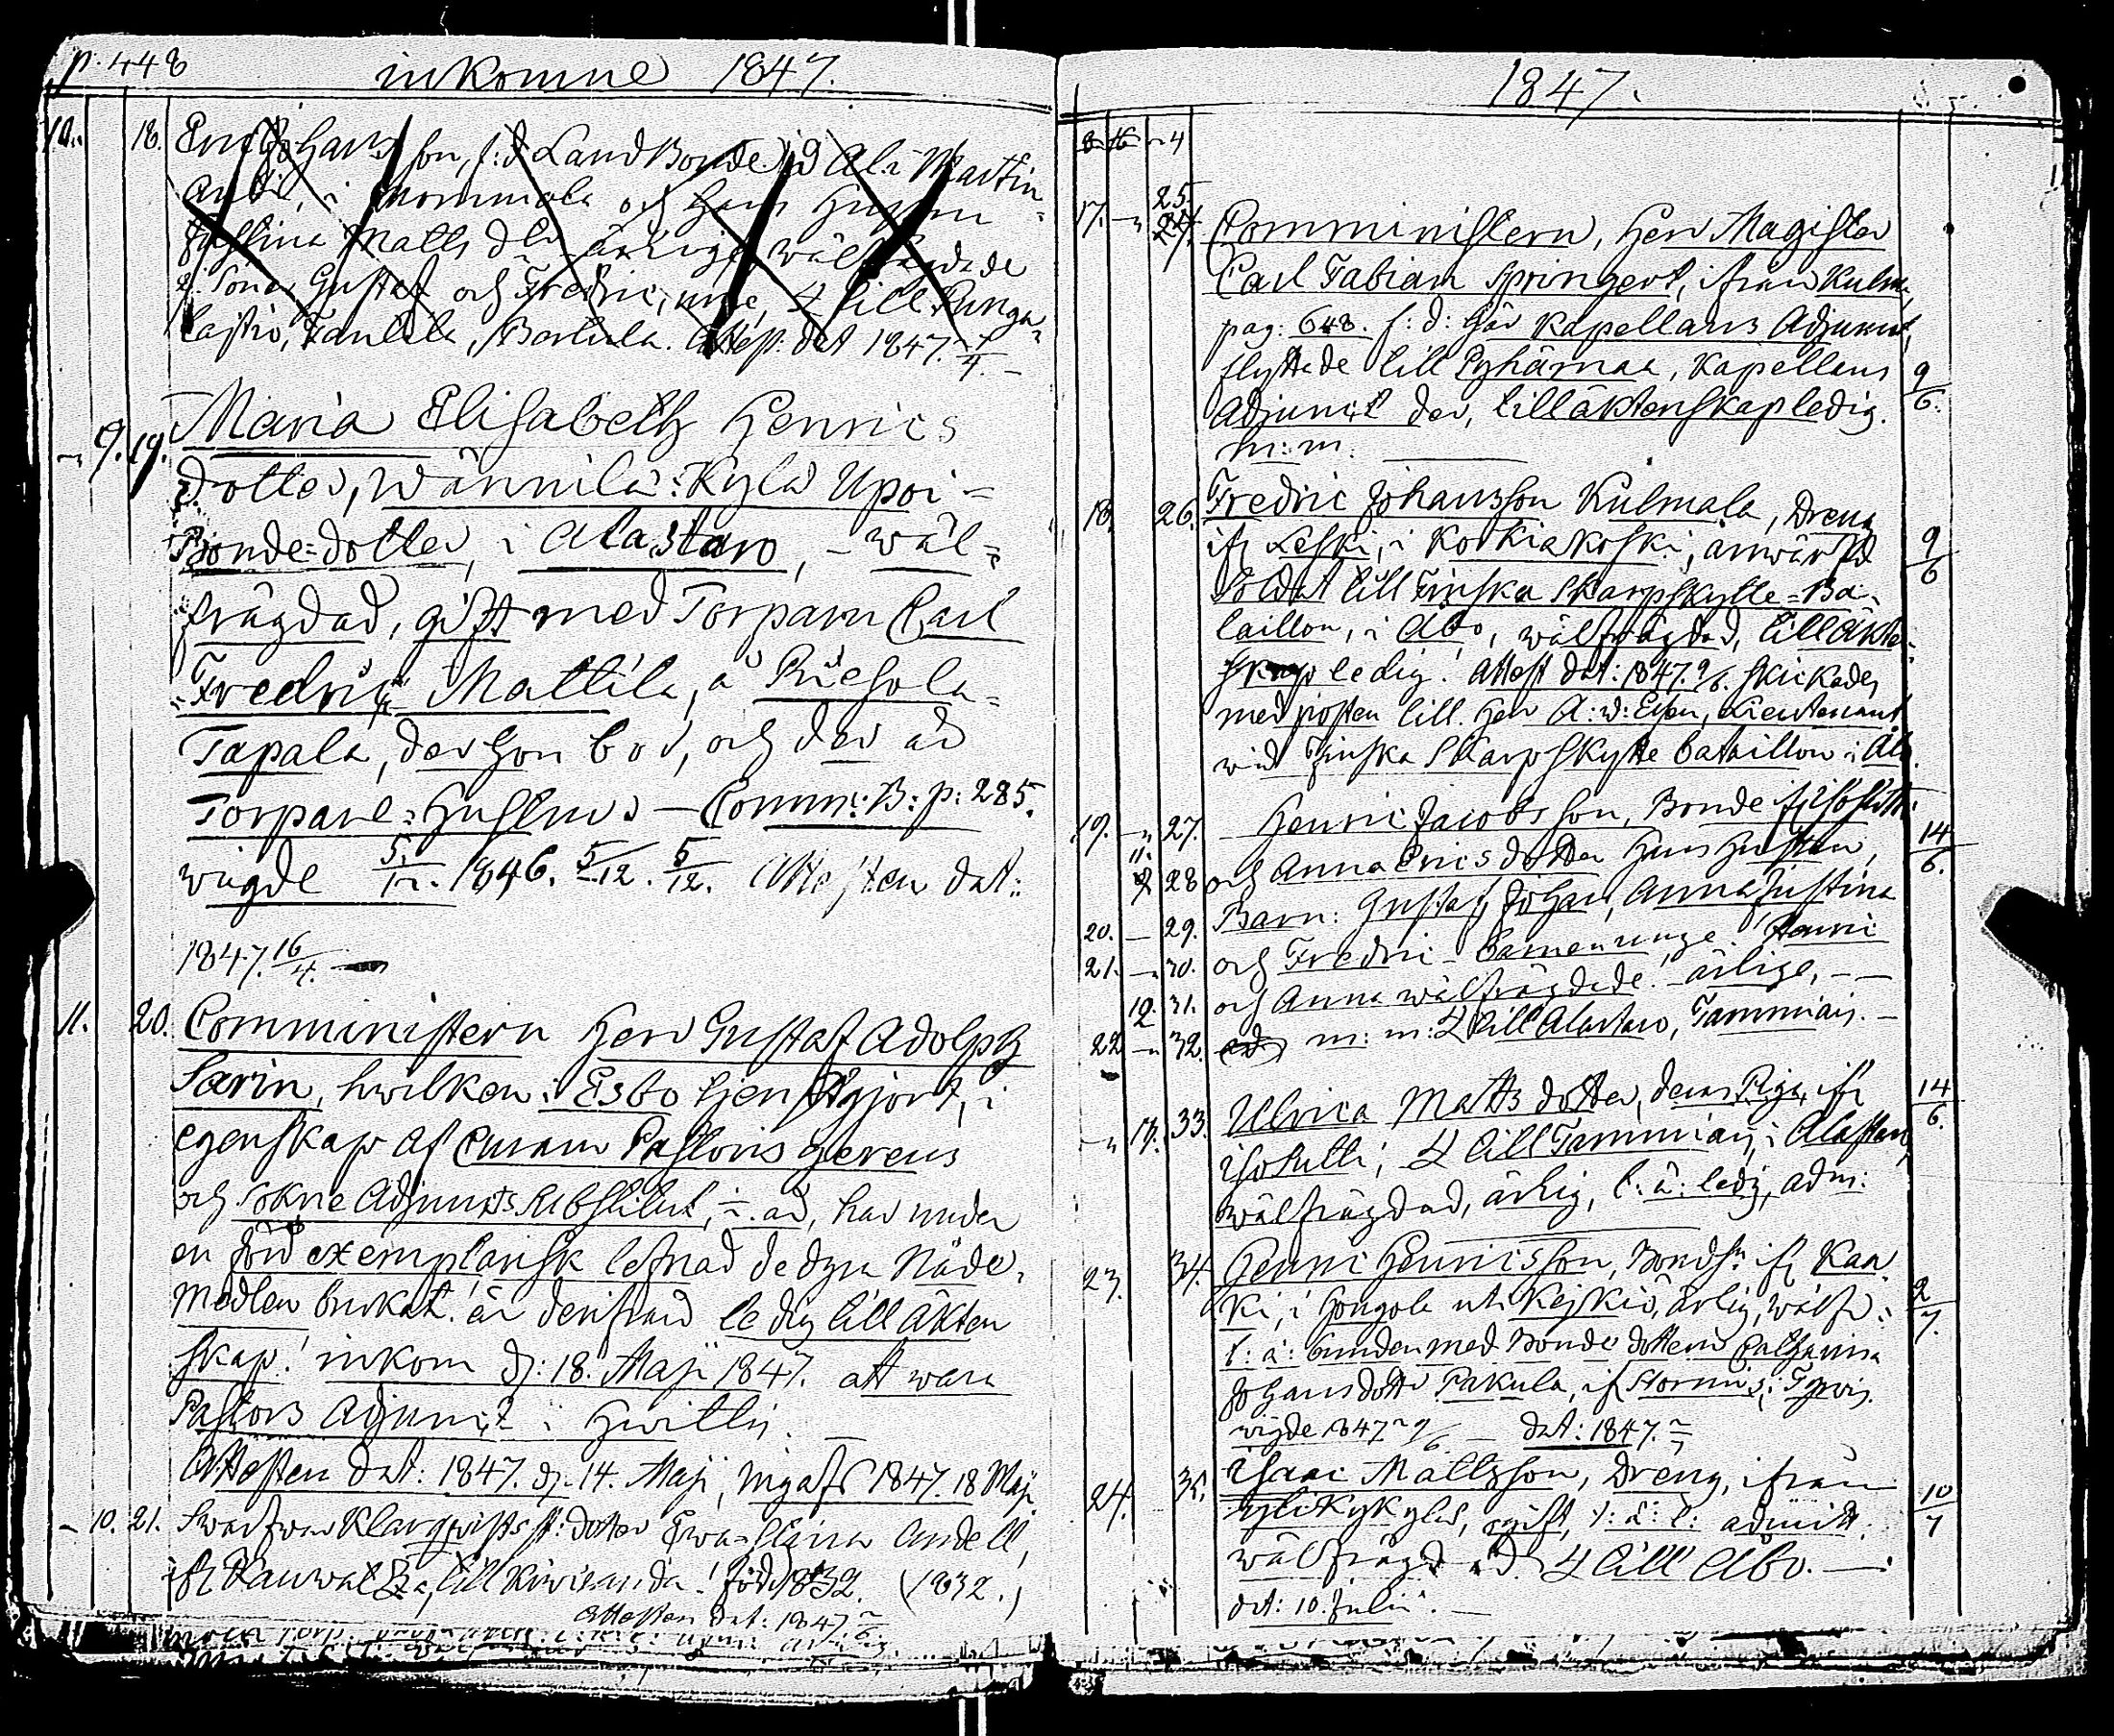 p. 448 inkomne 1847.
10. 18. Johansson, f: d LandBonde Ala Martin
i Mommola och hans Hustru
Justina Matts dr ärliga, wälfrägdade
Gustaf och Fredric, unge, till Punga-
laitio, Attest: dat 1847.
" 9. 19. Maria Elisabeth Henrics
dotter, Wännilä: Kylä Upoi -
Bonde=dotter, i Alastaro, - wäl=
frägdad, gift med Torparn Carl
Fredric Mattila, å Riesola=
Tapala, der hon bor, och der är
Torpare=Hustru - Comm: B: p: 285.
wigde 5/12. 1846. 5/12. 5/12. Attesten dat:
1847. 16/4.
11. 20. Comministern Herr Gustaf Adolph
Sarin, hwilken i Esbo tjenstgjort, i
egenskap af Curam Pastoris gerens
och Sokne Adjuncts Substitut, har under
en exemplarisk lefnad de dyra Nåde-
medlen brukat. är derifrån ledig till äkten
skap! inkom d: 18. Maji 1847. att wara
Pastors Adjunct i Hwittis. -
Attesten dat: 1847. d. 14. Maji, ingafs 1847. 18 Maji
" 10. 21. Klarqwists dotter Ewa Stina Andell,
ifr Kauwatsa, till Kiwiranda! född 1832. (1832.)
Attesten dat: 1847.
1847.
4
17. " 25. Comministern, Herr Magister
Carl Fabian Springert, ifrån Kulma,
pag: 648. f: d: här Kapellans Adjunct,
flyttade till Pyhämaa, Kapellans 9/6.
Adjunct der, till äktenskap ledig.
m: m.
18. 26. Fredric Johansson Kulmala, Dreng
ifr Leski, i Korkiakoski, anwärfd 9/6
Soldat till Finska Skarpskytte=Ba-
taillon, i Åbo, wälfrägdad, till äkte-
skap ledig! Attest dat: 1847. 9/6. skickades
med posten till Herr A: W: Essen, Lieutenant
wid Finska Skarpskytte bataillon i Åbo.
19. " 27. Henric Jacobsson, Bonde ifr Isosutti 14/6.
11. 28 och Anna Ericsdotter hans Hustru,
20. - 29. Barn: Gustaf, Johan, Anna Justina
21. " 30. och Fredric - barnen unge. Henric
12. 31. och Anna wälfrägdade! ärlige, - -
22 " 32. m: m: till Alastaro, Tammiais. -
" 13. 33. Ulrica Mattsdotter, deras Piga, ifr 14/6.
Isosutti, till Tammiais i Alastaro,
wälfrägdad, ärlig, t: ä: ledig, adm:
23. 34. Henric Henricsson, Bondsn ifr Kaa-
ki, i Hongola ut: Kejkiö, ärlig, wälfr: 2/7.
t: ä: bunden med Bonde dottern Catharina
Johansdotter Pakula, ifr Stormis, i Tyrvis.
wigde 1847 9/6 - dat: 1847. 2/7
24. 35. Isaac Mattsson, Dreng, ifrån
Ylikykylä, t: ä: l: admitt. 10/7
wälfrägdad till Åbo. -
dat: 10. Julii. -